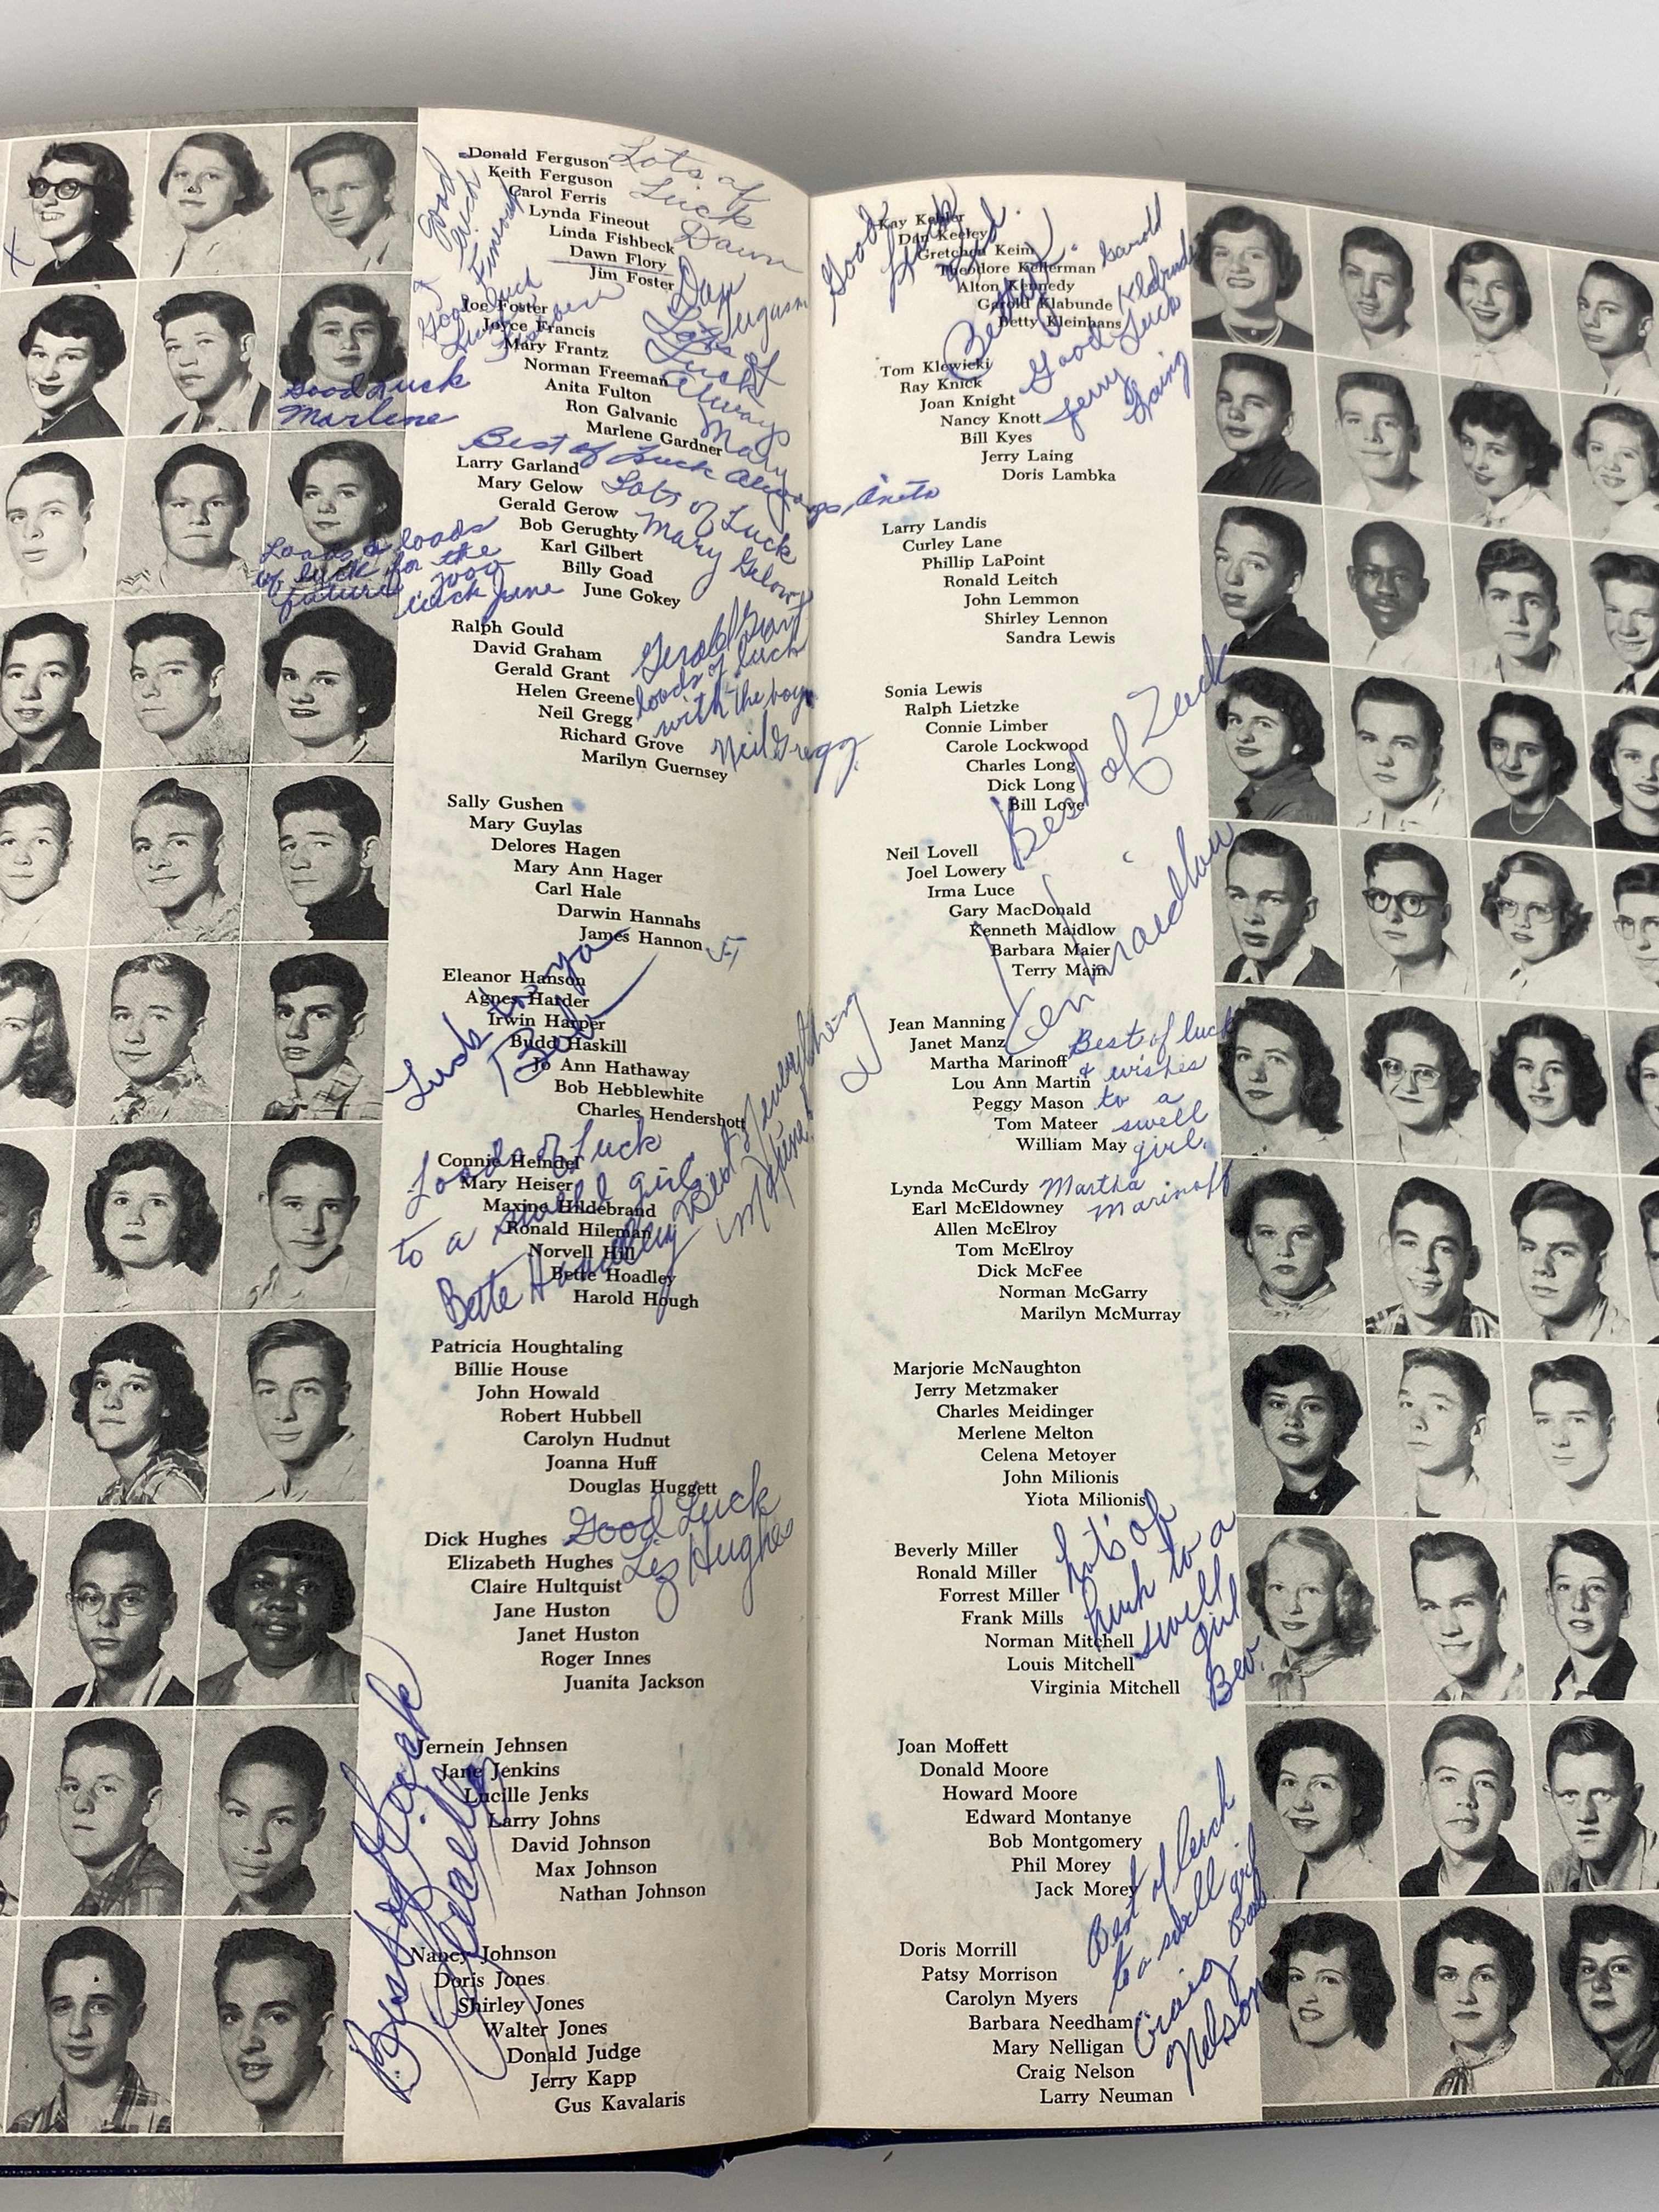 Donald Ferguson
Keith Ferguson
Carol Ferris
Lynda Fineout
Linda Fishbeck
Dawn Flory
Jim Foster
Lots of
Luck
Dawn
Good
Luck
Joe Foster
Joyce Francis
Mary Frantz
Norman Freeman
Anita Fulton
Ron Galvanic
Marlene Gardner
Lots of
Luck
Always
Mary
Good Luck
Marlene
Best of Luck Always, Anita
Larry Garland
Mary Gelow
Gerald Gerow
Bob Gerughty
Karl Gilbert
Billy Goad
June Gokey
Lots of Luck
Mary Gelow
Loads & loads
of luck for the
future
luck June
Ralph Gould
David Graham
Gerald Grant
Helen Greene
Neil Gregg
Richard Grove
Marilyn Guernsey
Gerald Grant
loads of luck
with the boys
Neil Gregg
Sally Gushen
Mary Guylas
Delores Hagen
Mary Ann Hager
Carl Hale
Darwin Hannahs
James Hannon
Eleanor Hanson
Agnes Harder
Irwin Harper
Budd Haskill
Jo Ann Hathaway
Bob Hebblewhite
Charles Hendershott
Luck to ya
Bob
Connie Hemdel
Mary Heiser
Maxine Hildebrand
Ronald Hileman
Norvell Hill
Bette Hoadley
Harold Hough
Loads of Luck
to a swell girl
Bette Hoadley
Best of everything
Patricia Houghtaling
Billie House
John Howald
Robert Hubbell
Carolyn Hudnut
Joanna Huff
Douglas Huggett
Dick Hughes
Elizabeth Hughes
Claire Hultquist
Jane Huston
Janet Huston
Roger Innes
Juanita Jackson
Good Luck
Liz Hughes
Jernein Jehnsen
Jane Jenkins
Lucille Jenks
Larry Johns
David Johnson
Max Johnson
Nathan Johnson
Best of Luck
Nancy Johnson
Doris Jones
Shirley Jones
Walter Jones
Donald Judge
Jerry Kapp
Gus Kavalaris
Kay Kehler
Dan Keeley
Gretchen Keim
Theodore Kellerman
Alton Kennedy
Garold Klabunde
Betty Kleinhans
Good
Luck
Betty K.
Garold
Klabunde
Tom Klewicki
Ray Knick
Joan Knight
Nancy Knott
Bill Kyes
Jerry Laing
Doris Lambka
Good Luck
Jerry
Laing
Larry Landis
Curley Lane
Phillip LaPoint
Ronald Leitch
John Lemmon
Shirley Lennon
Sandra Lewis
Sonia Lewis
Ralph Lietzke
Connie Limber
Carole Lockwood
Charles Long
Dick Long
Bill Love
Best of Luck
Neil Lovell
Joel Lowery
Irma Luce
Gary MacDonald
Kenneth Maidlow
Barbara Maier
Terry Main
Ken Maidlow
Jean Manning
Janet Manz
Martha Marinoff
Lou Ann Martin
Peggy Mason
Tom Mateer
William May
Best of luck
& wishes
to a
swell
girl.
Martha
Marinoff
Lynda McCurdy
Earl McEldowney
Allen McElroy
Tom McElroy
Dick McFee
Norman McGarry
Marilyn McMurray
Marjorie McNaughton
Jerry Metzmaker
Charles Meidinger
Merlene Melton
Celena Metoyer
John Milionis
Yiota Milionis
Beverly Miller
Ronald Miller
Forrest Miller
Frank Mills
Norman Mitchell
Louis Mitchell
Virginia Mitchell
Lot's of
luck to a
swell
girl
Bev.
Joan Moffett
Donald Moore
Howard Moore
Edward Montanye
Bob Montgomery
Phil Morey
Jack Morey
Best of luck
to a swell girl
Barb
Doris Morrill
Patsy Morrison
Carolyn Myers
Barbara Needham
Mary Nelligan
Craig Nelson
Larry Neuman
Craig
Nelson